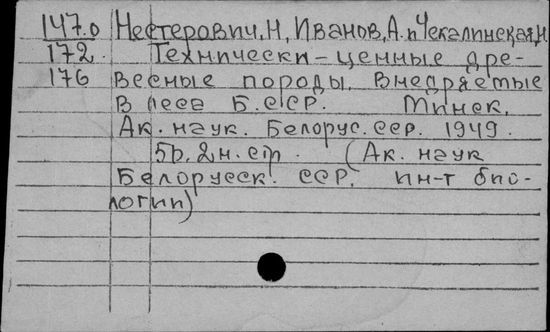 147.0 Нестерович, Н, Иванов, А. и Чекалинская, Н
172. Технически-ценные дре-
176 весные породы, внедряемые
в леса Б.ССР. Минск,
Ак. наук. Белорус. ССР. 1949.
5р. 2 н. ст. (Ак. наук
Белорусск. ССР, ин-т био-
логии)